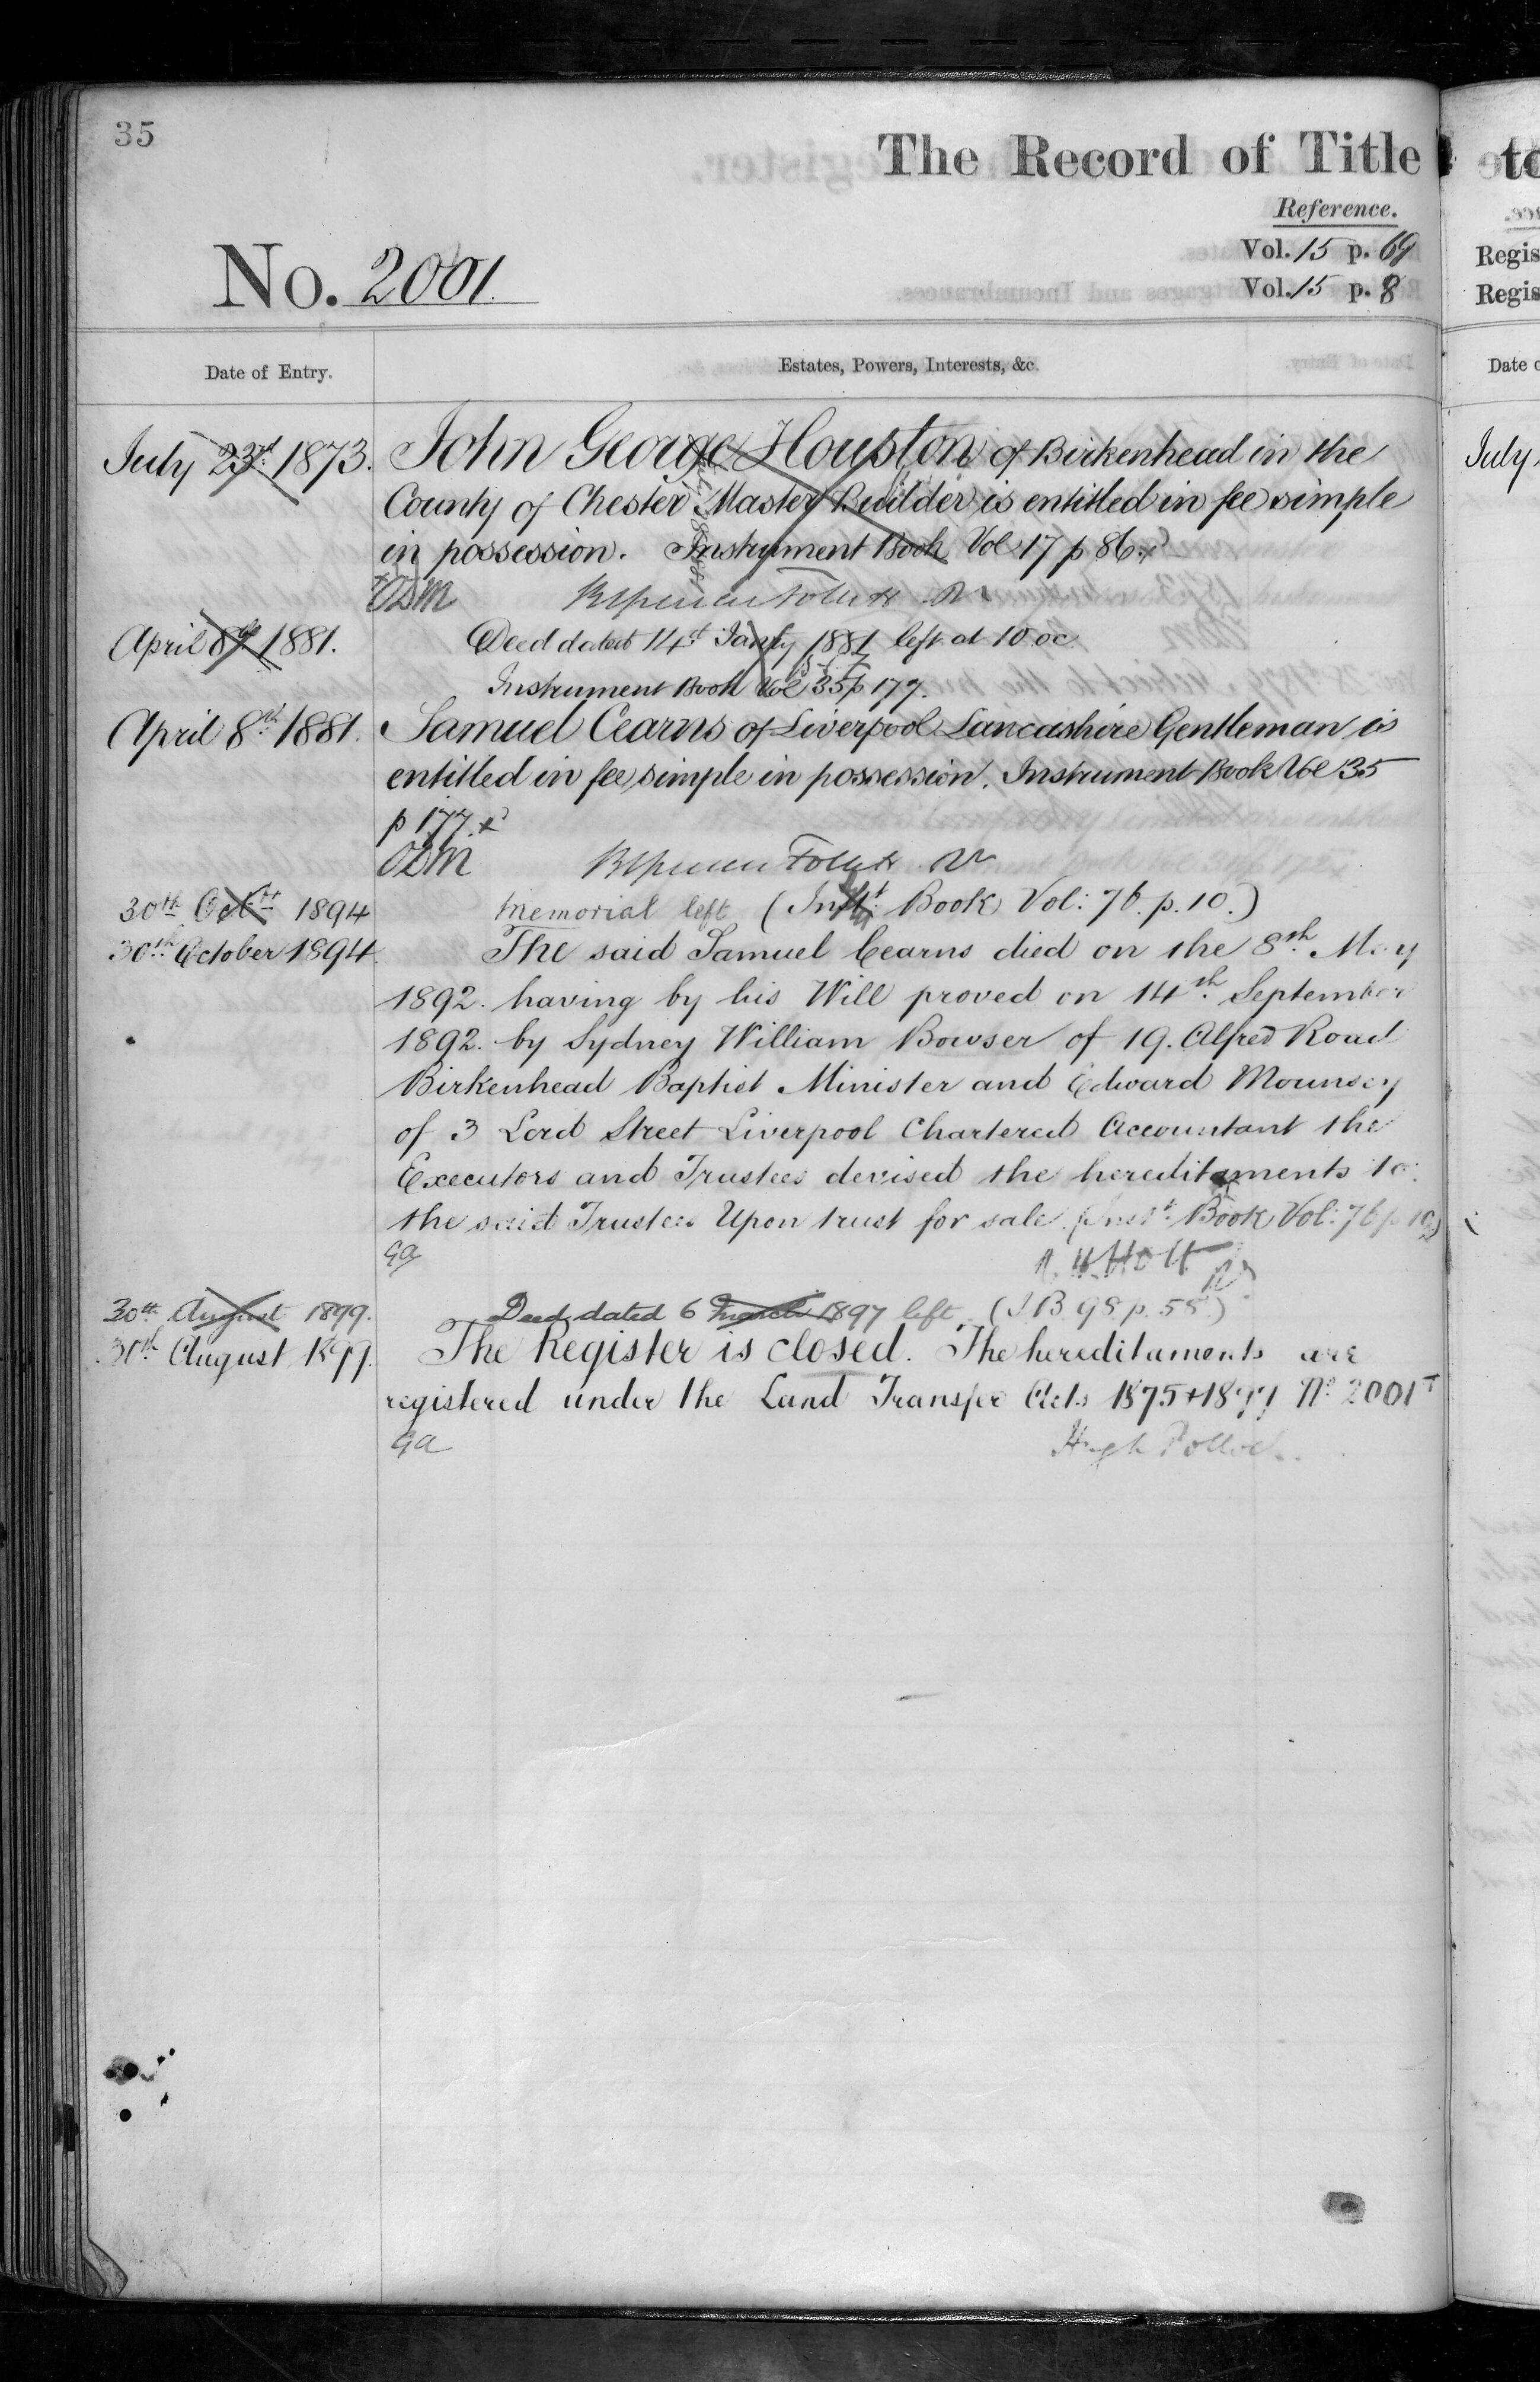 35
The Record of Title
Reference.
No. 2001.
Vol. 15 p. 69
Vol. 15 p. 8
Date of Entry.
Estates, Powers, Interests, &c.
July 23rd. 1873. John George Houston of Birkenhead in the
County of Chester Master Builder is entitled in fee simple
in possession. Instrument Book Vol 17 p 86.
April 8th 1881. Deed dated 14th Jany 1881 left at 10 oc
Instrument Book Vol 35 p 177.
April 8th 1881. Samuel Cearns of Liverpool Lancashire Gentleman is
entitled in fee simple in possession. Instrument Book Vol 35
p 177.
30th Octr 1894 Memorial left (Inst. Book Vol: 76. p. 10.)
30th October 1894. The said Samuel Cearns died on the 8th May
1892. having by his Will proved on 14th September
1892. by Sydney William Bowser of 19. Alfred Road
Birkenhead Baptist Minister and Edward Mounsey
of 3 Lord Street Liverpool Chartered Accountant the
Executors and Trustees devised the hereditaments to
the said Trustees Upon trust for sale (Inst. Book Vol: 76 p 10)
GA
30th August 1899. Deed dated 6 March 1897 left. (I B 98 p. 58.)
30th August 1899. The Register is closed. The hereditaments are
registered under the Land Transfer Acts 1875 + 1897 No 2001
GA Hugh Pollock
to
Regis
Regis
July